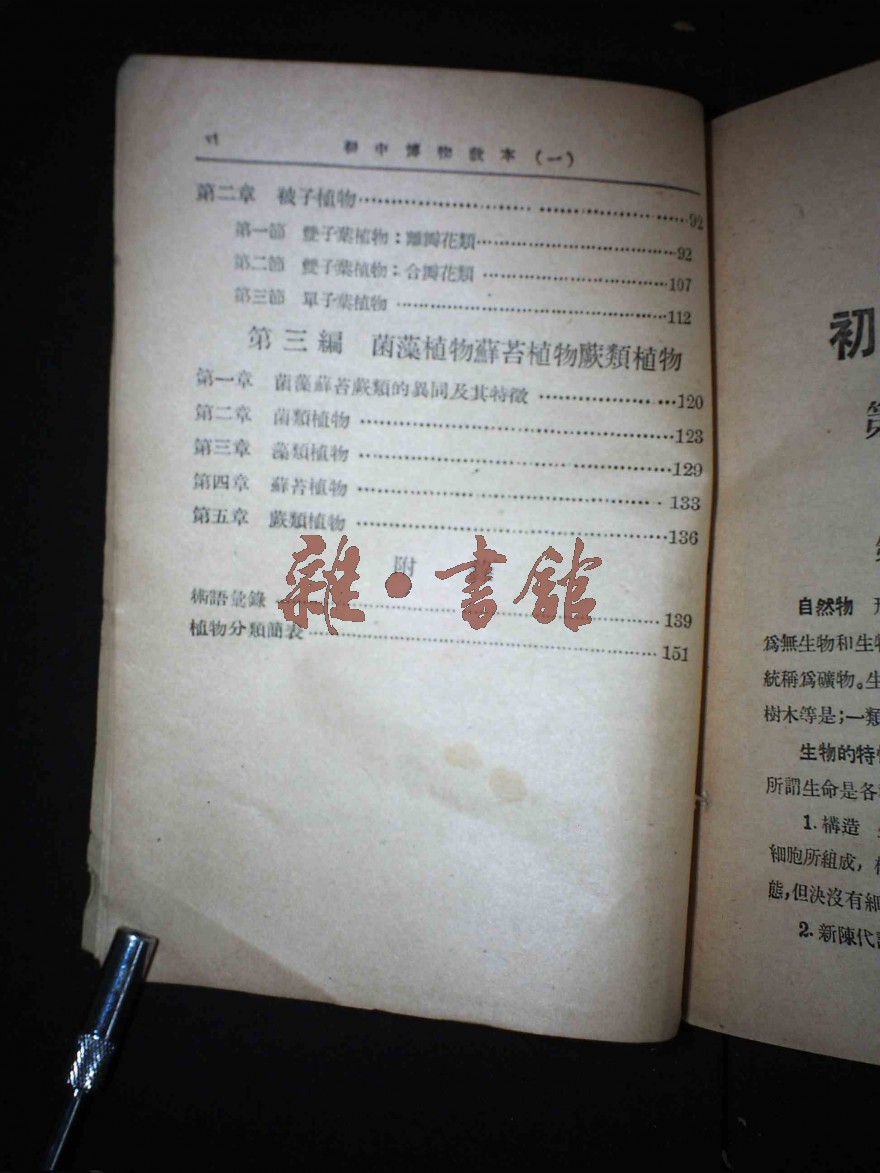 初中博物教本(一)
第二章 被子植物……92
第一節 雙子葉植物:離瓣花類……92
第二節 雙子葉植物:合瓣花類……107
第三節 單子葉植物……112
第三編 菌藻植物蘚苔植物蕨類植物
第一章 菌藻蘚苔蕨類的異同及其特徵……120
第二章 菌類植物……123
第三章 藻類植物……129
第四章 蘚苔植物……133
第五章 蕨類植物……136
附
術語彙錄……139
植物分類簡表……151
雜·書館
初
第
自然物
爲無生物和生物
統稱爲礦物。生
樹木等是;一類
生物的特
所謂生命是各
1.構造
細胞所組成,
態,但決沒有細
2.新陳代